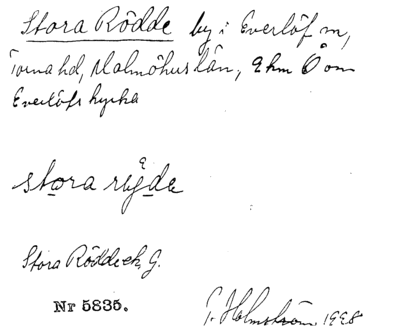 Stora Rödde by i Everlöf sn,
Torna hd, Malmöhus län, 2 km Ö om
Everlöfs kyrka
Stora Röddeck, G.
Nr 5835.
Holmström 1998